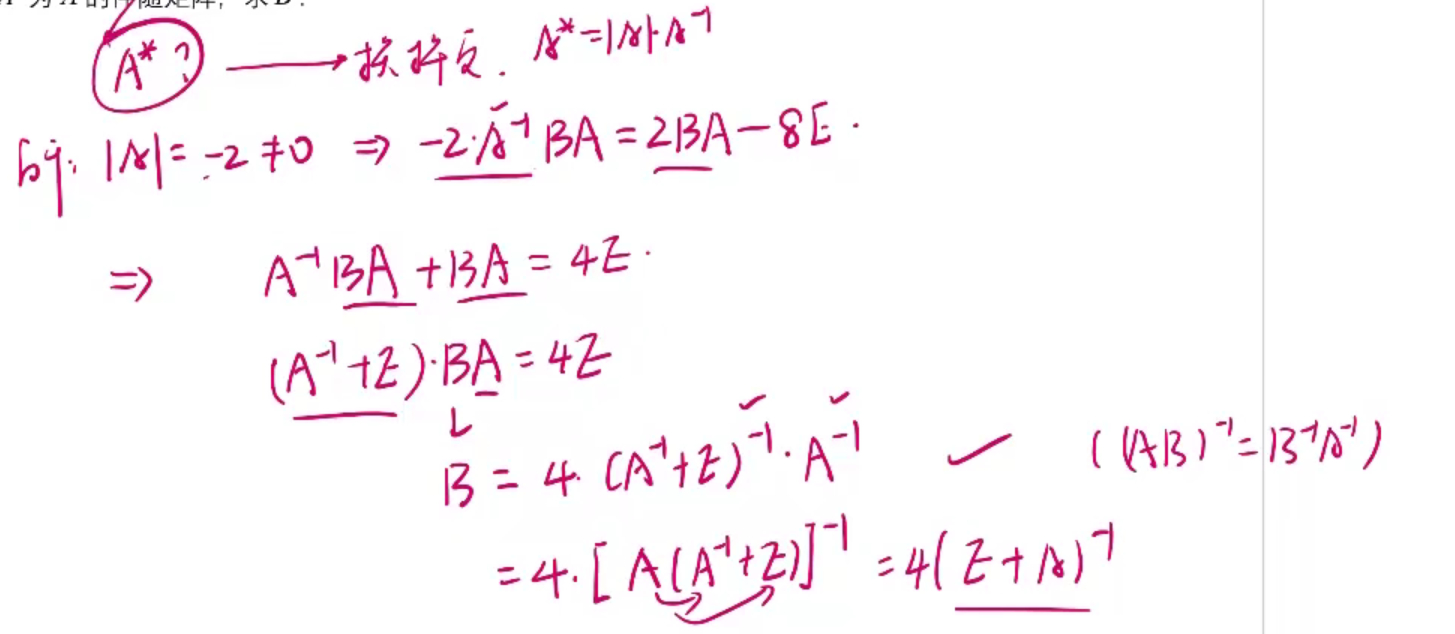 为 A 的伴随矩阵，求 B．
A*? → 换掉它. A*=|A|·A⁻¹
|A|= -2 ≠0 ⇒ -2·A⁻¹BA=2BA-8E.
⇒ A⁻¹BA+BA=4E.
(A⁻¹+E)·BA=4E
B=4·(A⁻¹+E)⁻¹·A⁻¹ ✓ ((AB)⁻¹=B⁻¹A⁻¹)
=4·[A(A⁻¹+E)]⁻¹=4(E+A)⁻¹